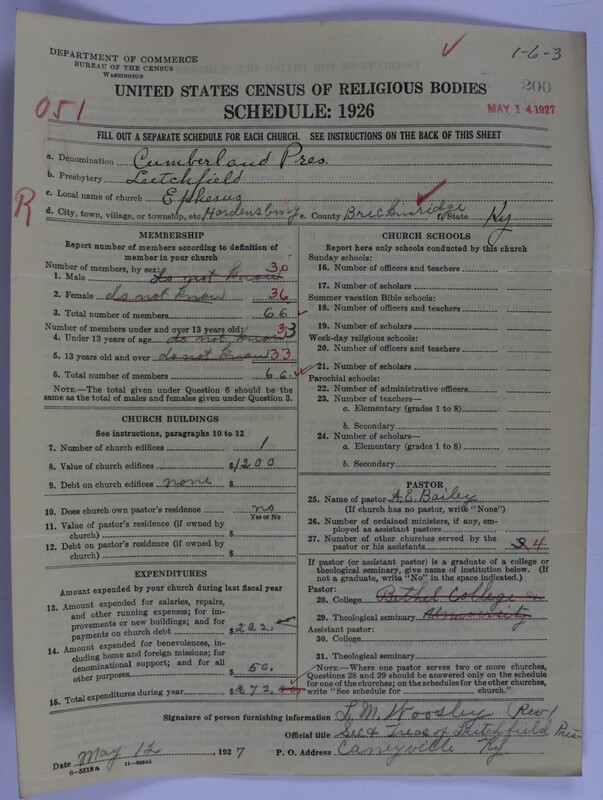 1-6-3
DEPARTMENT OF COMMERCE
BUREAU OF THE CENSUS
WASHINGTON
200
UNITED STATES CENSUS OF RELIGIOUS BODIES
051
SCHEDULE: 1926
MAY 14 1927
FILL OUT A SEPARATE SCHEDULE FOR EACH CHURCH. SEE INSTRUCTIONS ON THE BACK OF THIS SHEET
a. Denomination Cumberland Pres.
b. Presbytery Leitchfield
c. Local name of church Ephesus
R
d. City, town, village, or township, etc. Hardensburg e. County Brickinridge f. State Ky
MEMBERSHIP
Report number of members according to definition of
member in your church
Number of members, by sex: 30
1. Male do not know
2. Female do not know 36
3. Total number of members 66
Number of members under and over 13 years old: 33
4. Under 13 years of age do not know
5. 13 years old and over do not know 33
6. Total number of members 66
NOTE.—The total given under Question 6 should be
same as the total of males and females given under Question 3.
CHURCH BUILDINGS
See instructions, paragraphs 10 to 12
7. Number of church edifices 1
8. Value of church edifices $1200
9. Debt on church edifices none $
10. Does church own pastor's residence no
Yes or No
11. Value of pastor's residence (if owned by
church) $
12. Debt on pastor's residence (if owned by
church) $
EXPENDITURES
Amount expended by your church during last fiscal year
13. Amount expended for salaries, repairs,
and other running expenses; for im-
provements or new buildings; and for
payments on church debt $222.
14. Amount expended for benevolences, in-
cluding home and foreign missions; for
denominational support; and for all
other purposes 50.
15. Total expenditures during year $272.
CHURCH SCHOOLS
Report here only schools conducted by this church
Sunday schools:
16. Number of officers and teachers
17. Number of scholars
Summer vacation Bible schools:
18. Number of officers and teachers
19. Number of scholars
Week-day religious schools:
20. Number of officers and teachers
21. Number of scholars
Parochial schools:
22. Number of administrative officers
23. Number of teachers—
a. Elementary (grades 1 to 8)
b. Secondary
24. Number of scholars—
a. Elementary (grades 1 to 8)
b. Secondary
PASTOR
25. Name of pastor A.E. Bailey
(If church has no pastor, write "None")
26. Number of ordained ministers, if any, em-
ployed as assistant pastors
27. Number of other churches served by the
pastor or his assistants 4
If pastor (or assistant pastor) is a graduate of a college or
theological seminary, give name of institution below. (If
not a graduate, write "No" in the space indicated.)
Pastor:
28. College Bethel College
29. Theological seminary
Assistant pastor:
30. College
31. Theological seminary
NOTE.—Where one pastor serves two or more churches,
Questions 28 and 29 should be answered only on the schedule
for one of the churches; on the schedules for the other churches,
write "See schedule for church."
Signature of person furnishing information L M Woosley (Rev)
Official title Sec & Treas of Leitchfield Pres
Date May 12, 1927 P. O. Address Caneyville Ky